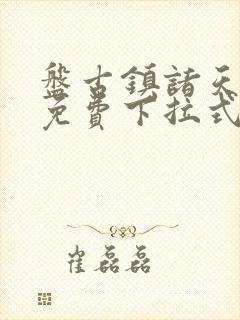 盤古鎮諸天
免費下拉式
崔磊磊